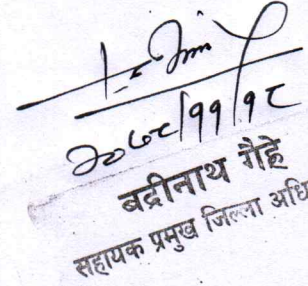 २०७८/११/१८
बद्रीनाथ गैह्रे
सहायक प्रमुख जिल्ला अधि